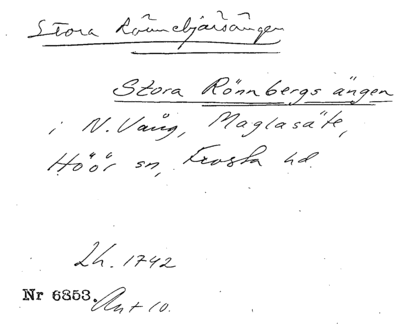 Stora Rönnebjärsängen
Stora Rönnbergs ängen
i N. Vång, Maglasäte,
Höör sn, Frosta hd.
Lh. 1742
Nr 6853. Ant 10.